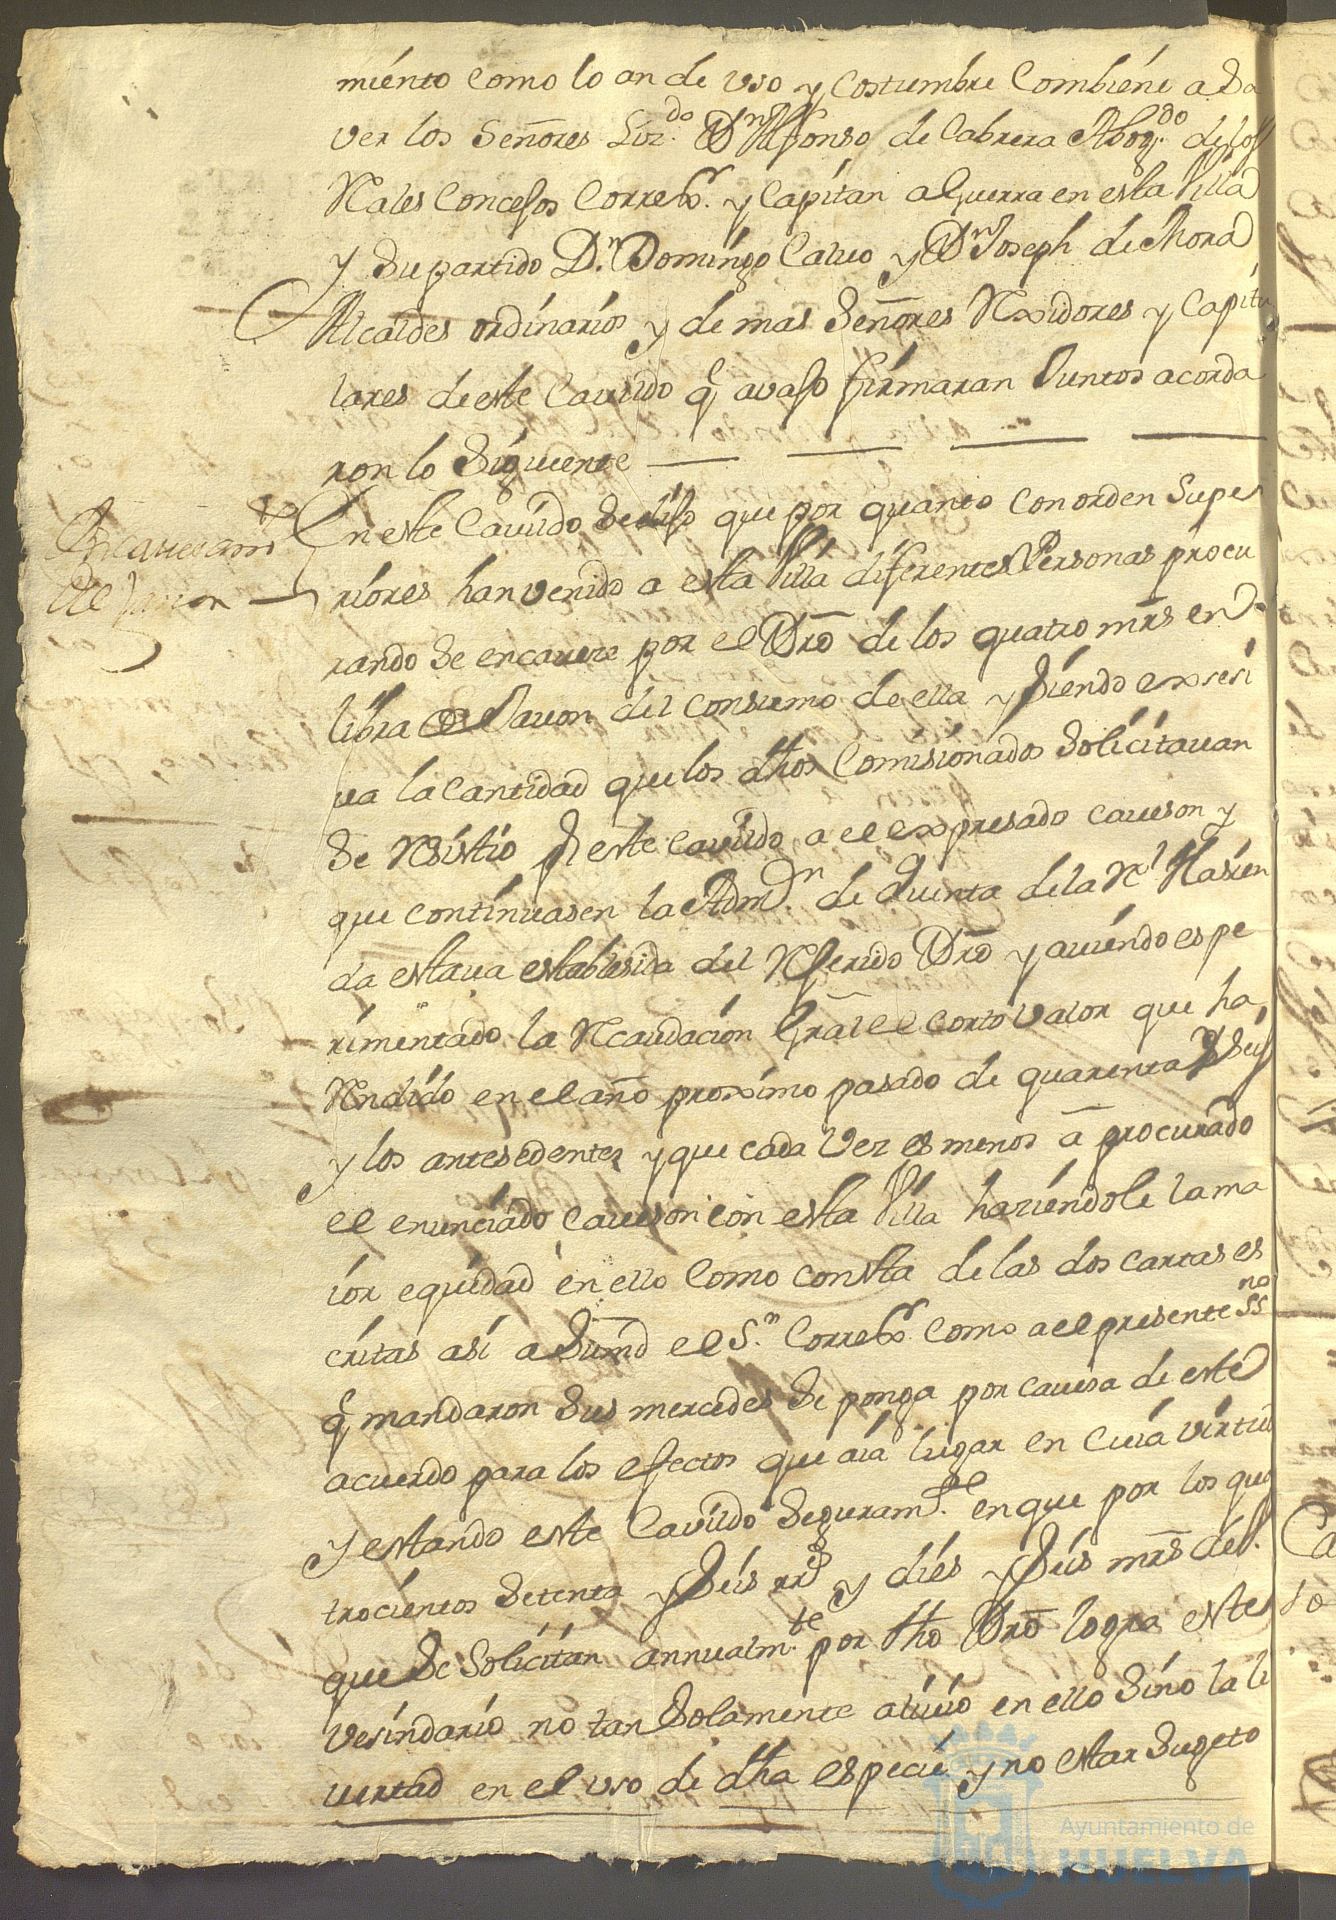 miento como lo an de uso y costumbre combiene a sa
ver los Señores Lizdo. Dn. Alfonso de Cabrera Abogdo. de los
Rales Concejos Correxor. y Capitan a Guerra en esta Villa
y su partido Dn. Domingo Calvo y Dn. Joseph de Mora
Alcaldes ordinarios y demas Señores Rexidores y Capitu
lares deeste Cavildo q avajo firmaran Juntos acorda
ron lo siguiente
Encavezami
del Javon
En este Cavildo se dijo que por quanto con orden Supe
riores han venido a esta Villa diferentes Personas procu
rando se encaveze por el Dro de los quatro mrs en
libra de Javon del consumo de ella y siendo exsesi
va la cantidad que los dhos Comisionados solicitavan
se resistio por este cavildo a el expresado caveson y
que continuasen la Admon. de quenta de la Rl Hasien
da estava establesida del referido Dro y aviendo espe
rimentado la Recaudacion Gral el corto valor que ha
rendido en el año proximo pasado de quarenta y seis
y los antesedentes y que cada vez es menos a procurado
el enunciado caveson con esta Villa haziendole la ma
ior equidad en ello como consta de las dos cartas es
critas asi a sumd el Sr. Correxor. como a el presente ssno
q mandaron sus mercedes se ponga por cavesa de este
acuerdo para los efectos que aia lugar en cuia virtud
y estando este Cavildo seguramte. en que por los qua
trocientos setenta y seis rrs y dies y seis mrs de vn.
que se solicitan annualmte. por dho Dro logra este
vesindario no tan solamente alivio en ello sino la li
vertad en el uso de dha especie y no estar sugeto
Ayuntamiento de
HUELVA